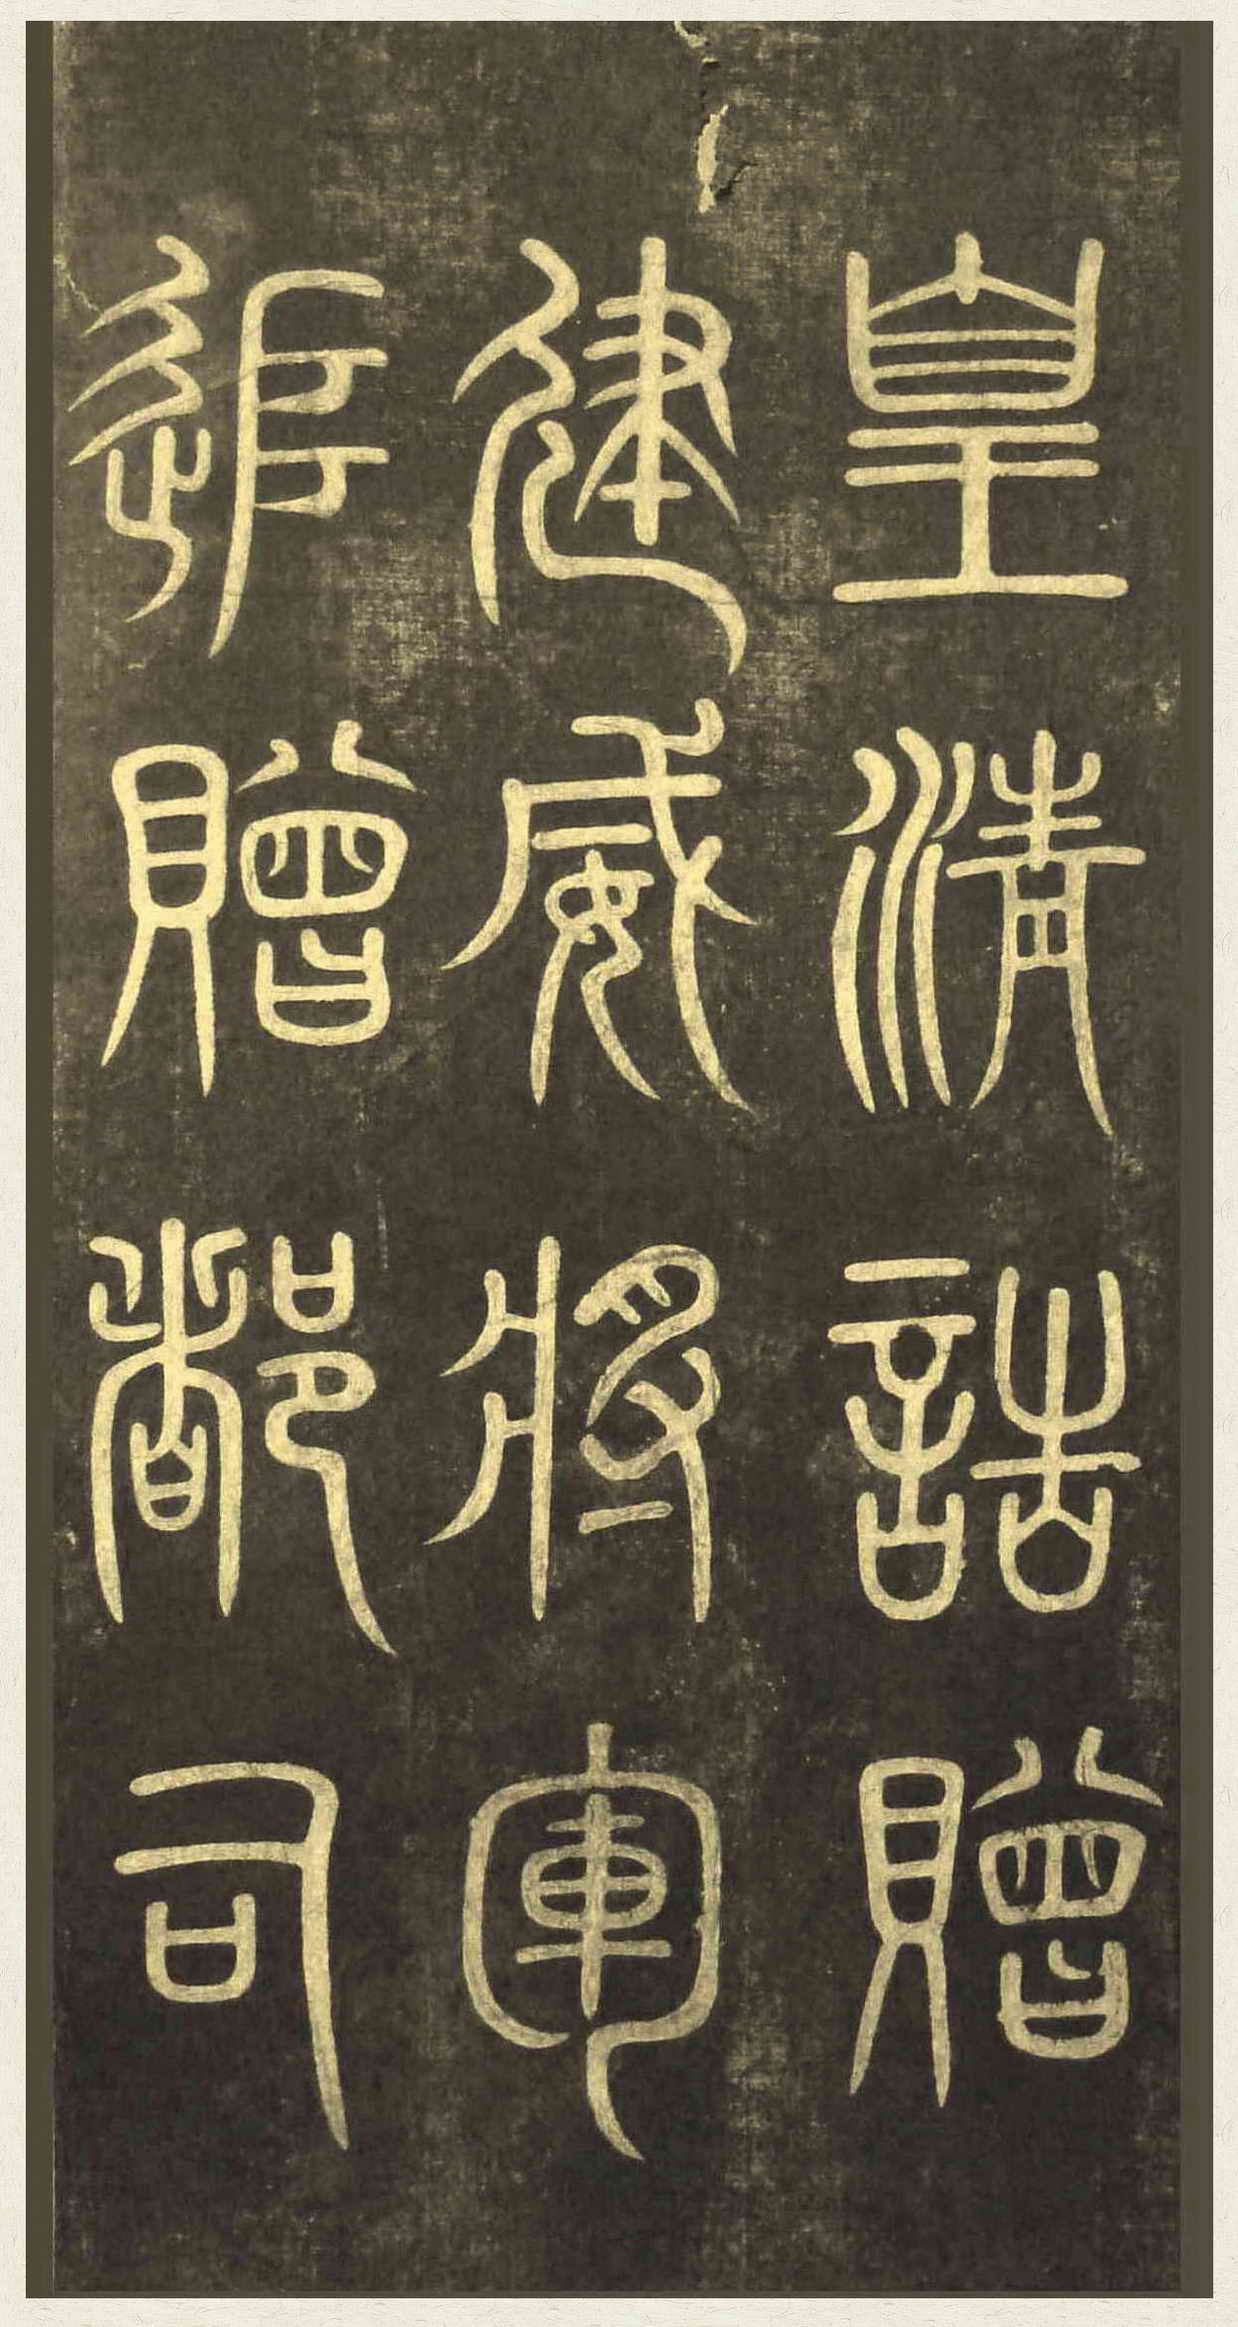 皇清誥贈
建威將軍
追贈都司